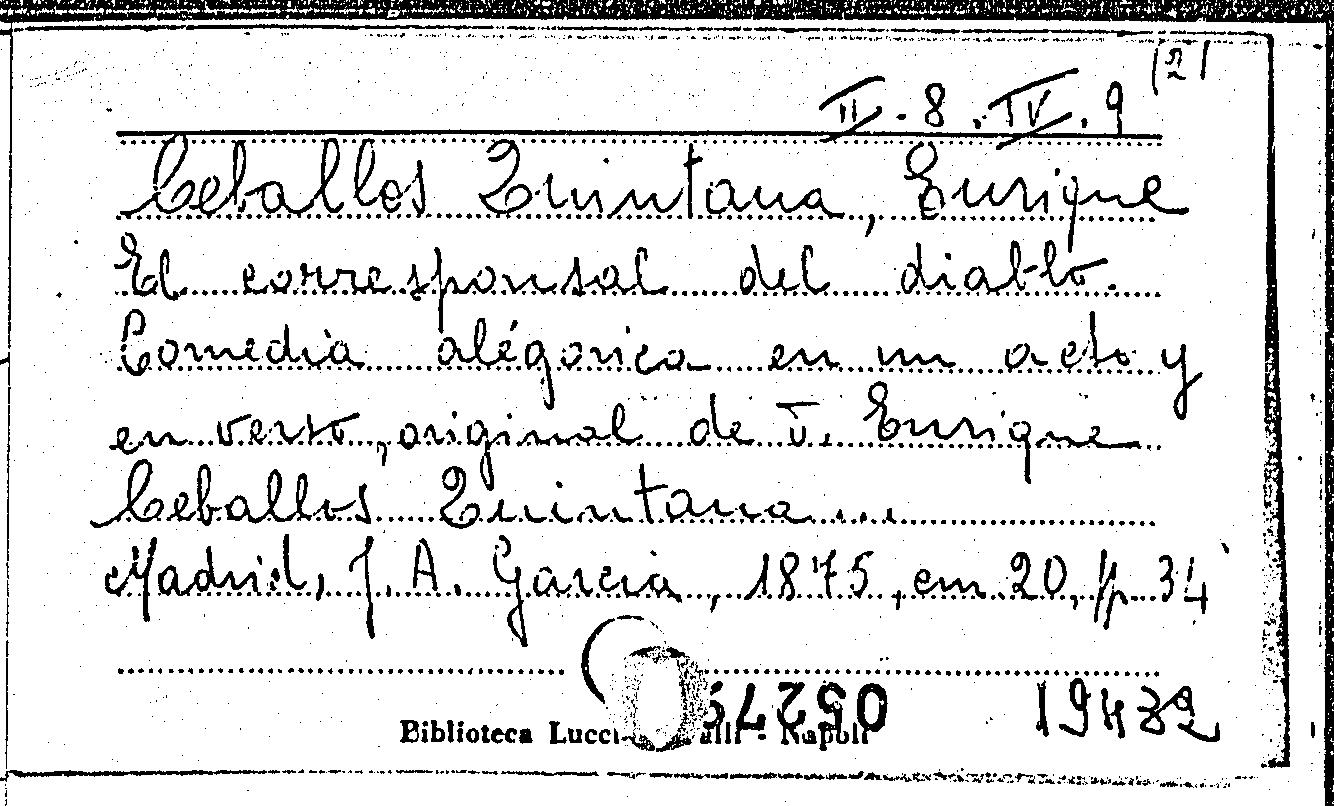 (2)
II. 8. IV. 9
Ceballos Quintana, Enrique
El corresponsal del diablo.
Comedia alégorica en un acto y
en verso, original de D. Enrique
Ceballos Quintana...
Madrid, J. A. Garcia, 1875, cm. 20, pp. 34
05279
Biblioteca Lucchesi Palli - Napoli